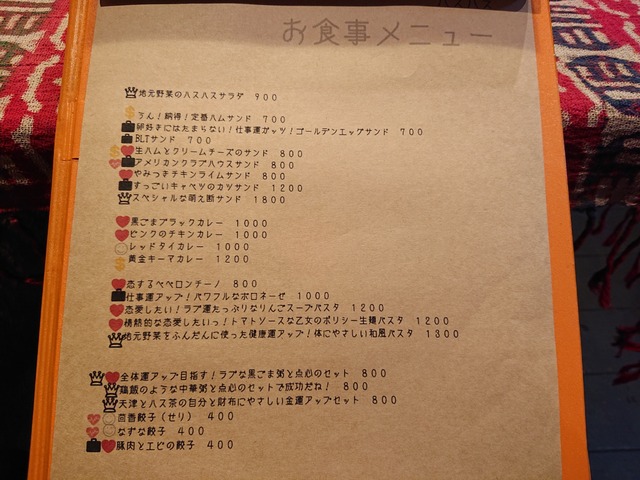 お食事メニュー
地元野菜のハスハスサラダ 900
うん!納得!定番ハムサンド 700
卵好きにはたまらない!仕事運ガッツ!ゴールデンエッグサンド 700
BLTサンド 700
生ハムとクリームチーズのサンド 800
アメリカンクラブハウスサンド 800
やみつきチキンライムサンド 800
すっごいキャベツのカツサンド 1200
スペシャルな萌え断サンド 1800
黒ごまブラックカレー 1000
ピンクのチキンカレー 1000
レッドタイカレー 1000
黄金キーマカレー 1200
恋するペペロンチーノ 800
仕事運アップ!パワフルなボロネーゼ 1000
恋愛したい!ラブ運たっぷりなりんごスープパスタ 1200
情熱的な恋愛したいっ!トマトソースな乙女のポリシー生麺パスタ 1200
地元野菜をふんだんに使った健康運アップ!体にやさしい和風パスタ 1300
全体運アップ目指す!ラブな黒ごま粥と点心のセット 800
鶏飯のような中華粥と点心のセットで成功だね! 800
天津とハス茶の自分と財布にやさしい金運アップセット 800
茴香餃子(セリ) 400
なずな餃子 400
豚肉とエビの餃子 400